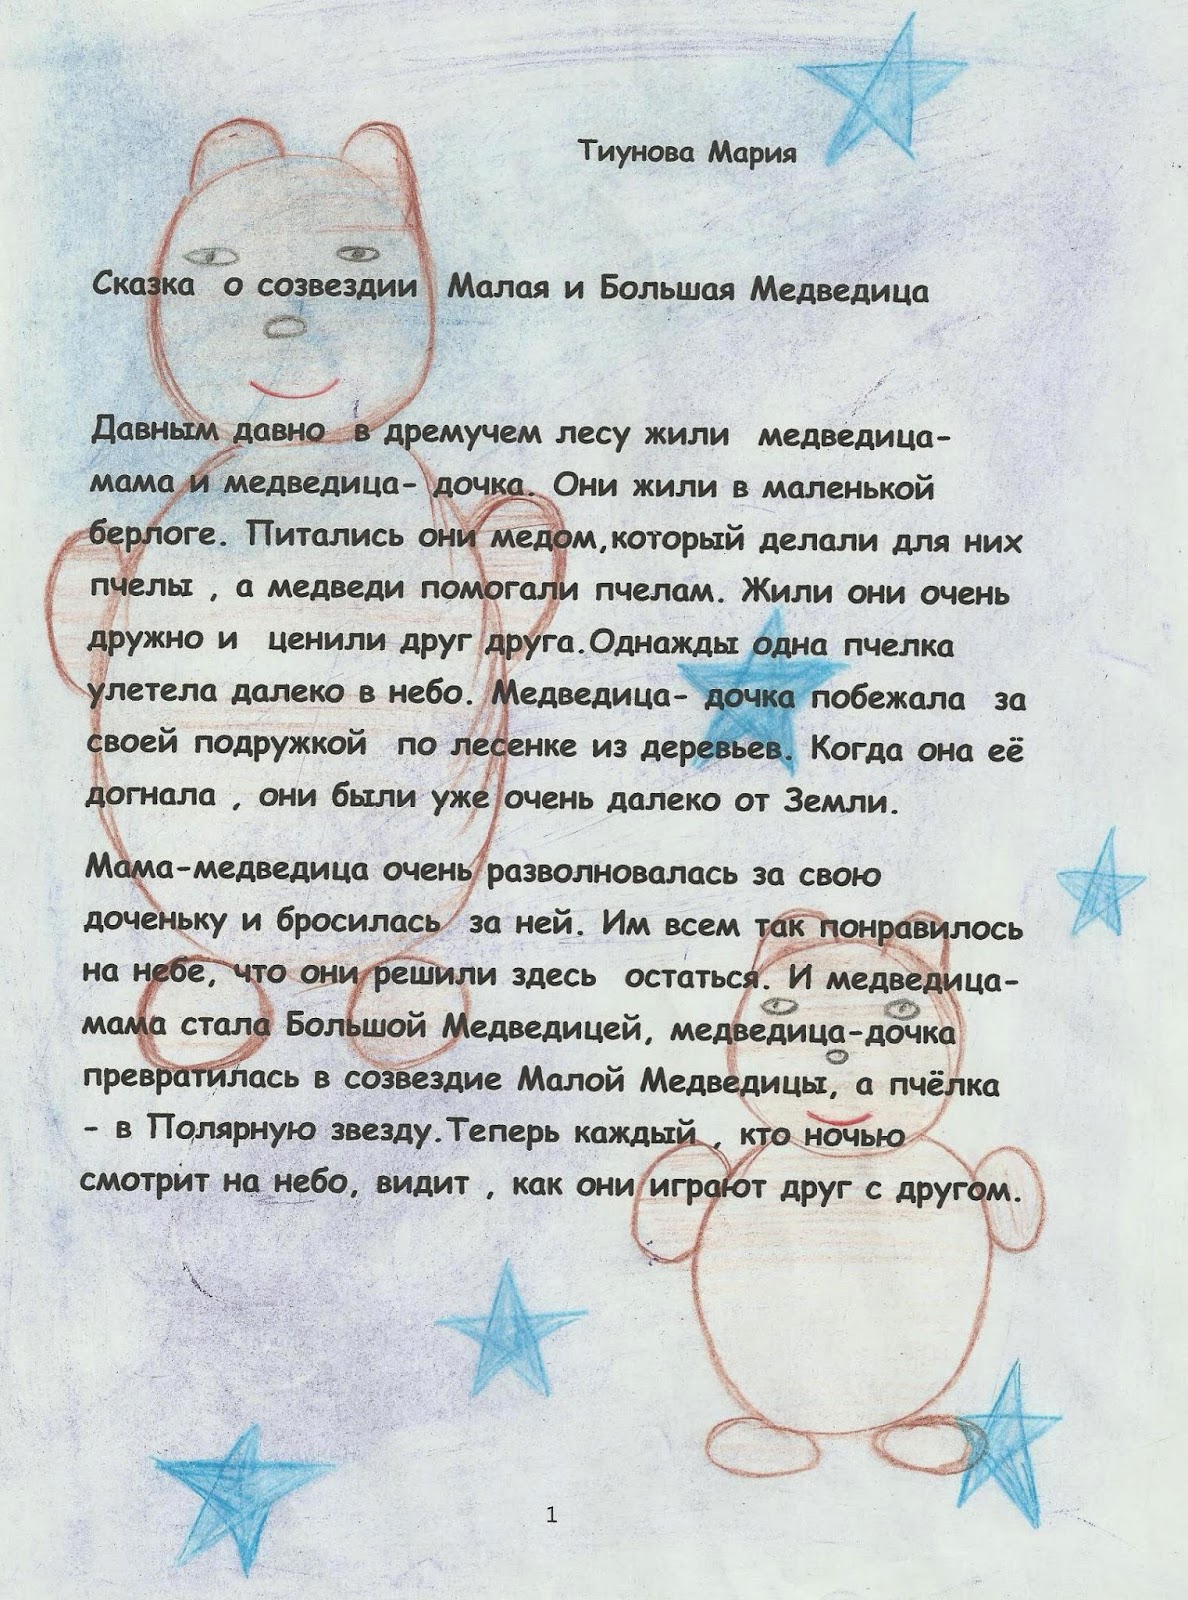 Тиунова Мария
Сказка о созвездии Малая и Большая Медведица
Давным давно в дремучем лесу жили медведица-
мама и медведица- дочка. Они жили в маленькой
берлоге. Питались они медом,который делали для них
пчелы , а медведи помогали пчелам. Жили они очень
дружно и ценили друг друга.Однажды одна пчелка
улетела далеко в небо. Медведица- дочка побежала за
своей подружкой по лесенке из деревьев. Когда она её
догнала , они были уже очень далеко от Земли.
Мама-медведица очень разволновалась за свою
доченьку и бросилась за ней. Им всем так понравилось
на небе, что они решили здесь остаться. И медведица-
мама стала Большой Медведицей, медведица-дочка
превратилась в созвездие Малой Медведицы, а пчёлка
- в Полярную звезду.Теперь каждый , кто ночью
смотрит на небо, видит , как они играют друг с другом.
1